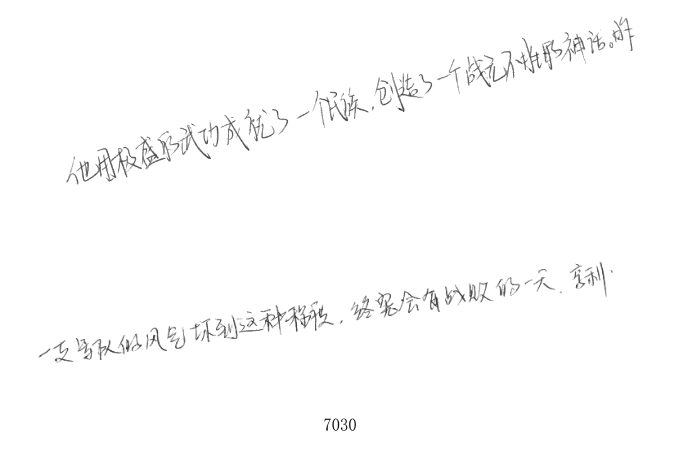 他用极盛的武功成就了一个民族,创造了一个战无不胜的神话。昨
一支军队的风气坏到这种程度,终究会有战败的一天,亨利·
7030